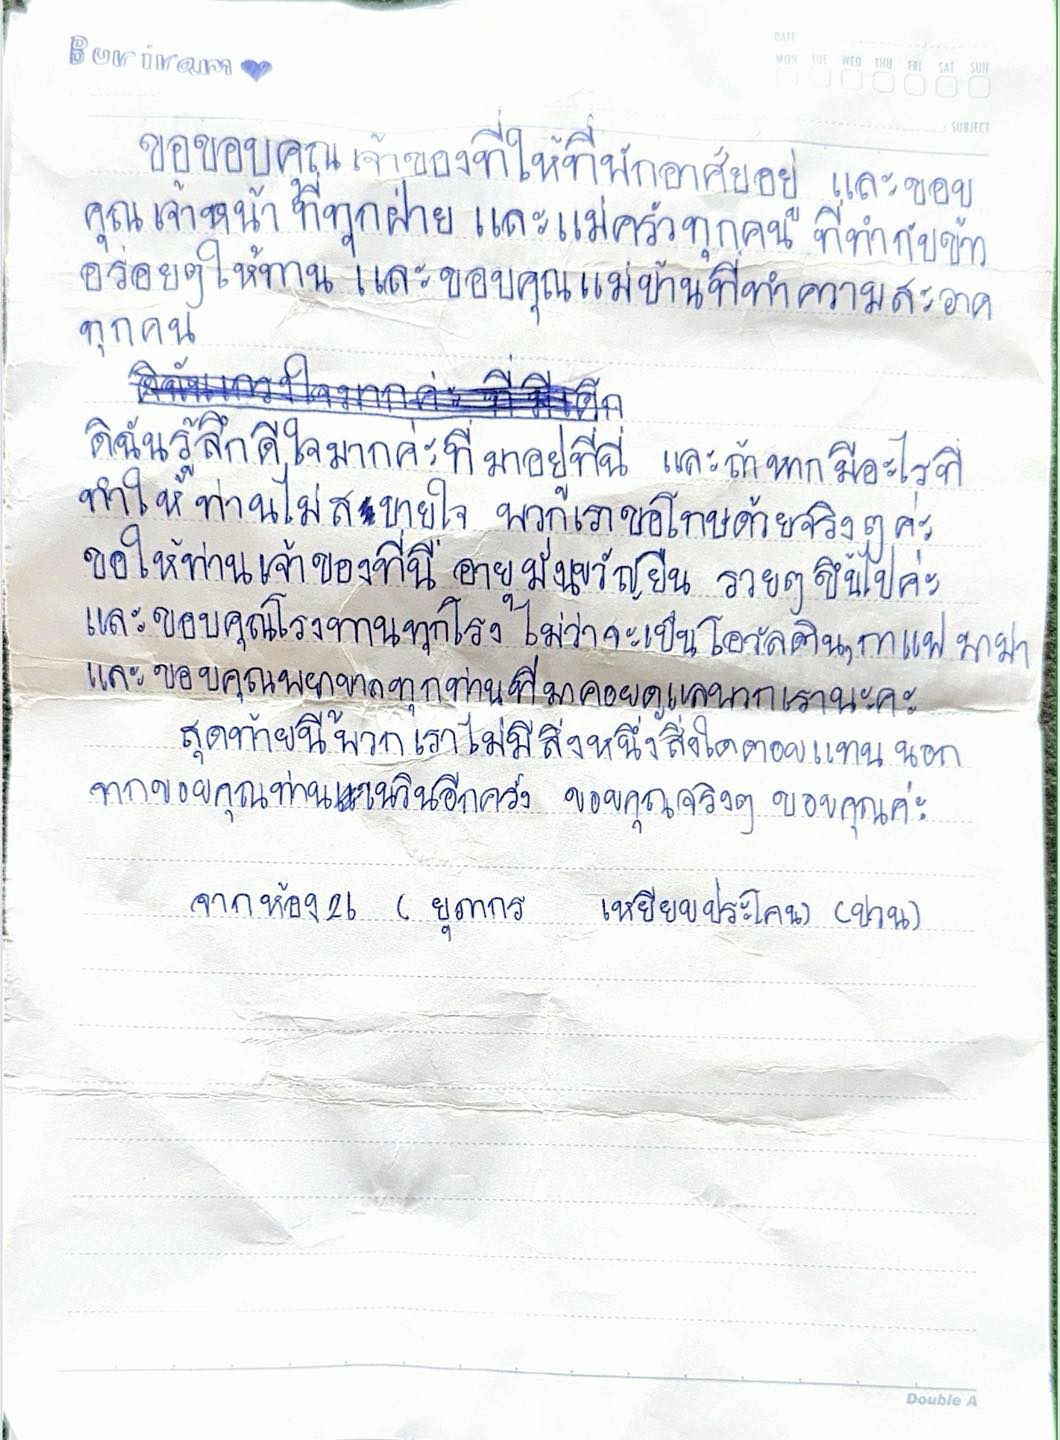 Buriram
DATE
MON TUE WED THU FRI SAT SUN
SUBJECT
ขอขอบคุณ เจ้าของที่ให้ที่พักอาศัยอยู่ และขอบ
คุณ เจ้าหน้า ที่ทุกฝ่าย และแม่ครัวทุกคน ที่ทำกับข้าว
อร่อยๆให้ทาน และขอบคุณแม่บ้านที่ทำความสะอาด
ทุกคน
ดิฉันรู้สึกดีใจมากค่ะที่มาอยู่ที่นี่ และถ้าหากมีอะไรที่
ทำให้ท่านไม่สบายใจ พวกเราขอโทษด้วยจริงๆค่ะ
ขอให้ท่านเจ้าของที่นี่ อายุมั่นขวัญยืน รวยๆขึ้นไปค่ะ
และขอบคุณโรงทานทุกโรง ไม่ว่าจะเป็น กาแฟ มาม่า
และขอบคุณพยาบาลทุกท่านที่มาคอยดูแลพวกเรานะคะ
สุดท้ายนี้พวกเราไม่มีสิ่งหนึ่งสิ่งใดตอบแทน นอก
จากขอบคุณท่าน อีกครั้ง ขอบคุณจริงๆ ขอบคุณค่ะ
จากห้อง 26 ( ยุภากร เหยียบประโคน) (ป่าน)
Double A